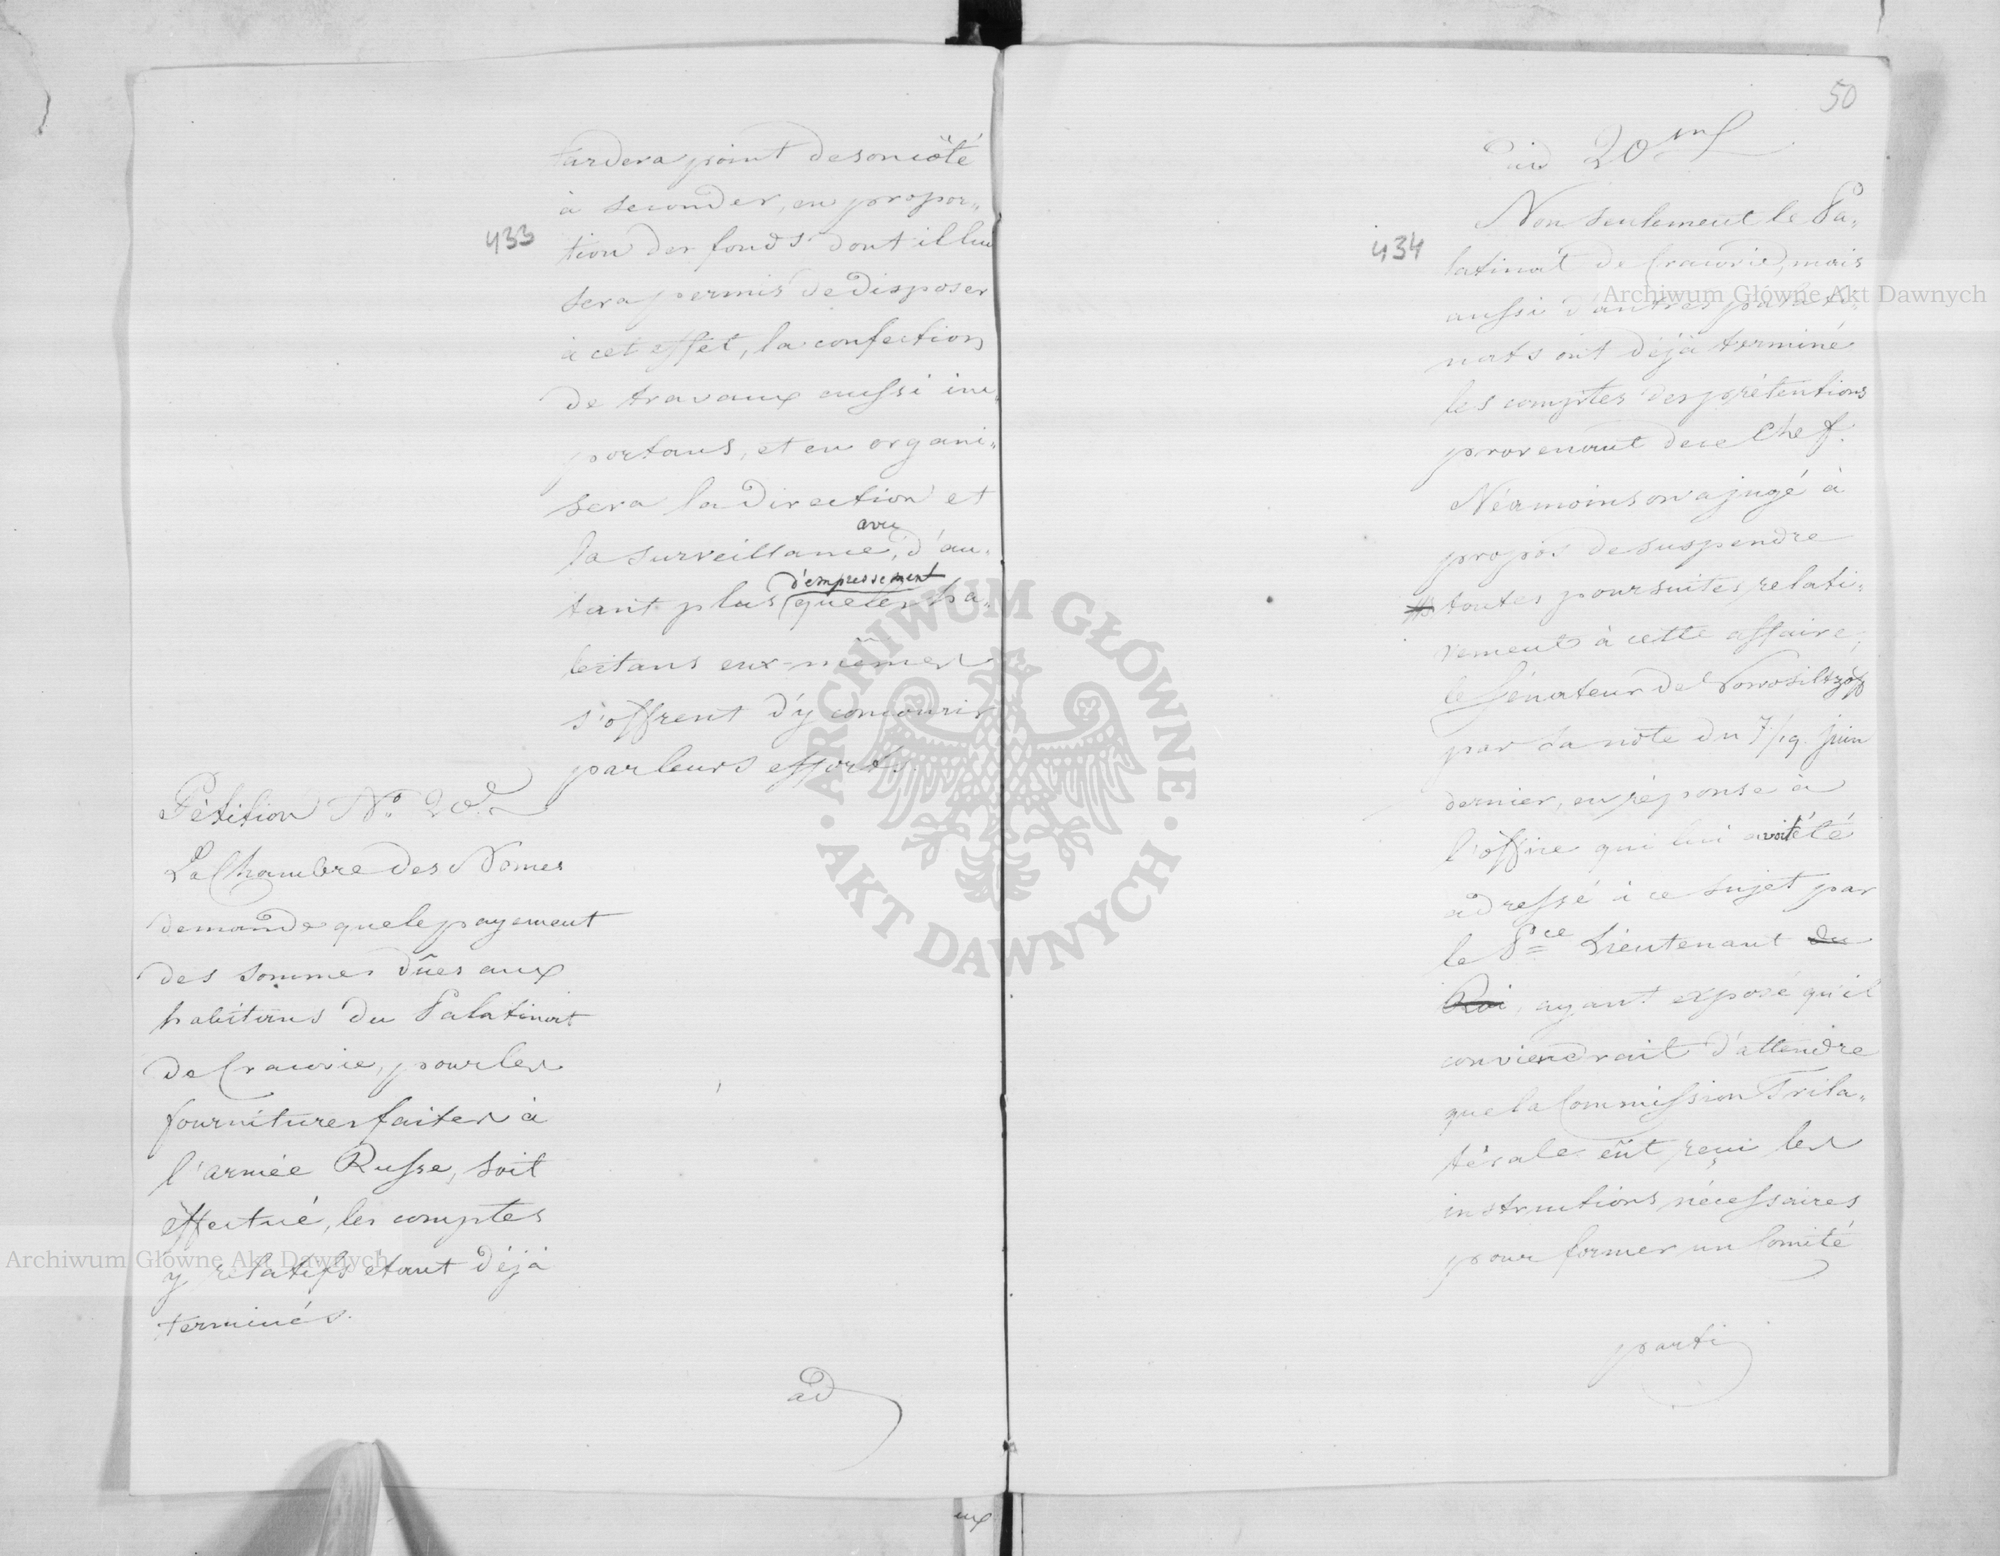 433
tardera point de son côté
à seconder, en propor„
tion des fonds dont il lui
sera permis de disposer
à cet effet, la confection
de travaux aussi im„
portans, et en organi„
sera la direction et
avec
la surveillance, d'au„
d'empressement
tant plus que les ha„
bitans eux-mêmes
s'offrent d'y concourir
par leurs efforts.
Pétition No. 20.
La Chambre des Nonces
demande que le payement
des sommes dûes aux
habitans du Palatinat
de Cracovie, pour les
fournitures faites à
l'armée Russe, soit
effectué, les comptes
y relatifs étant déjà
terminés.
ad
50
434
ad 20m
Non seulement le Pa„
latinat de Cracovie, mais
aussi d'autres palati„
nats ont déjà terminé
les comptes des prétentions
provenant de ce Chef.
Néamoins on a jugé à
propos de suspendre
toutes poursuites relati„
vement à cette affaire;
le Sénateur de Nowosiltzoff
par sa note du 7/19 juin
dernier, en réponse à
l'office qui lui avoit été
adressé à ce sujet par
le Pce Lieutenant du
Roi, ayant exposé qu'il
conviendrait d'attendre
que la Commission Trila„
térale eût reçu les
instructions nécessaires
pour former un Comité
parti
Archiwum Główne Akt Dawnych
Archiwum Główne Akt Dawnych
ARCHIWUM GŁÓWNE
AKT DAWNYCH